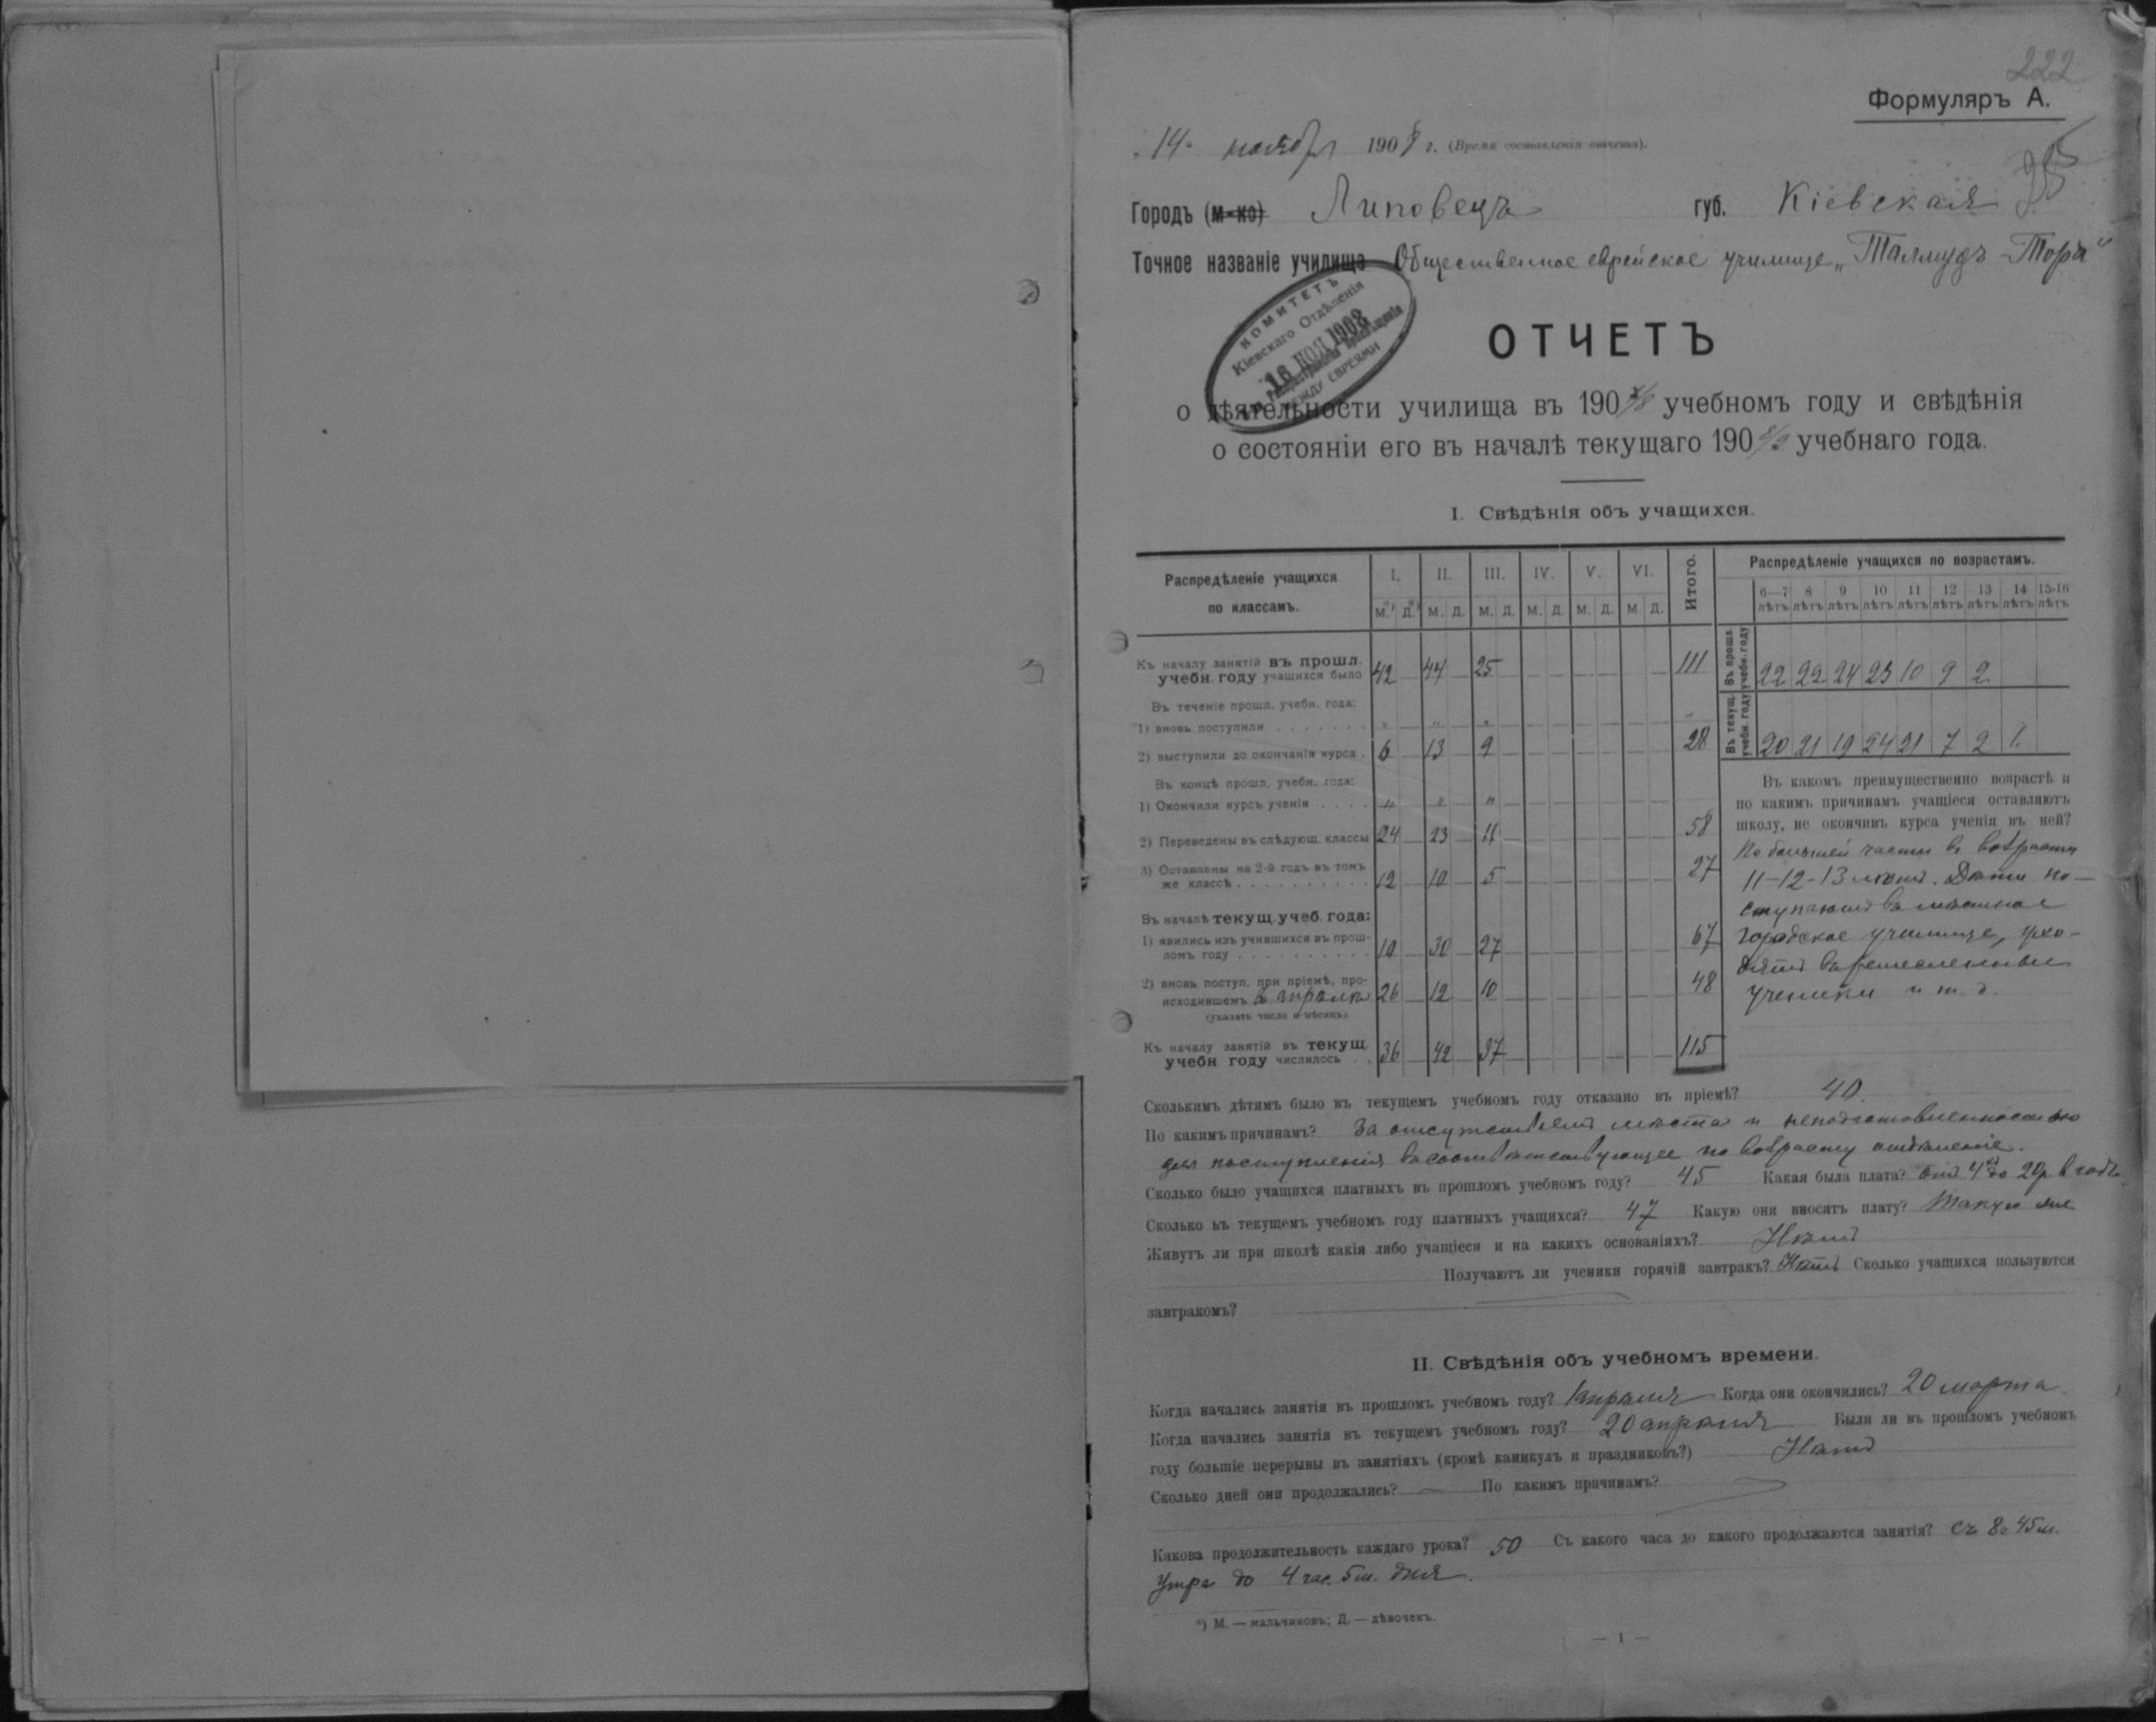 222
Формуляръ А.
„14“ ноября 1908 г. (Время составленія отчета).
285
Городъ (м-ко) Липовецъ губ. Кіевская
Точное названіе училища Общественное еврейское училище „Талмудъ-Тора“
КОМИТЕТЪ
Кіевскаго Отдѣленія
16 НОЯ 1908
МЕЖДУ ЕВРЕЯМИ
ОТЧЕТЪ
о дѣятельности училища въ 1907/8 учебномъ году и свѣдѣнія
о состояніи его въ началѣ текущаго 1908/9 учебнаго года.
I. Свѣдѣнія объ учащихся.
Распредѣленіе учащихся по классамъ. I. II. III. IV. V. VI. Итого.
м.*) д.*) м. д. м. д. м. д. м. д. м. д.
Къ началу занятій въ прошл. учебн. году учащихся было 42 — 44 — 25 — 111
Въ теченіе прошл. учебн. года:
1) вновь поступили . . . . . . . „ — „ — „ — „
2) выступили до окончанія курса . 6 — 13 — 9 — 28
Въ концѣ прошл. учебн. года:
1) Окончили курсъ ученія . . . . „ — „ — „ —
2) Переведены въ слѣдующ. классы 24 — 23 — 11 — 58
3) Оставлены на 2-й годъ въ томъ же классѣ . . . . . . . . . . 12 — 10 — 5 — 27
Въ началѣ текущ. учеб. года:
1) явились изъ учившихся въ прошломъ году . . . . . . . . . . 10 — 30 — 27 — 67
2) вновь поступ. при пріемѣ, происходившемъ въ апрѣлѣ 26 — 12 — 10 — 48
(указать число и мѣсяцъ)
Къ началу занятій въ текущ. учебн году числилось . . 36 — 42 — 37 — 115
Распредѣленіе учащихся по возрастамъ.
6—7 лѣтъ 8 лѣтъ 9 лѣтъ 10 лѣтъ 11 лѣтъ 12 лѣтъ 13 лѣтъ 14 лѣтъ 15-16 лѣтъ
Въ прошл. учебн. году 22 22 24 23 10 9 2
Въ текущ. учебн. году 20 21 19 24 21 7 2 1.
Въ какомъ преимущественно возрастѣ и
по какимъ причинамъ учащіеся оставляютъ
школу, не окончивъ курса ученія въ ней?
По большей части въ возрастѣ
11-12-13 лѣтъ. Дѣти по-
ступаютъ въ мѣстное
городское училище, ухо-
дятъ въ ремесленные
ученики и т. д.
Сколькимъ дѣтямъ было въ текущемъ учебномъ году отказано въ пріемѣ? 40.
По какимъ причинамъ? За отсутствіемъ мѣста и неподготовленностью
для поступленія въ соотвѣтствующее по возрасту отдѣленіе.
Сколько было учащихся платныхъ въ прошломъ учебномъ году? 45 Какая была плата? отъ 4 до 20 р. въ годъ.
Сколько въ текущемъ учебномъ году платныхъ учащихся? 47 Какую они вносятъ плату? Такую же
Живутъ ли при школѣ какія либо учащіеся и на какихъ основаніяхъ? Нѣтъ
Получаютъ ли ученики горячій завтракъ? Нѣтъ Сколько учащихся пользуются
завтракомъ?
II. Свѣдѣнія объ учебномъ времени.
Когда начались занятія въ прошломъ учебномъ году? 1 апрѣля Когда они окончились? 20 марта.
Когда начались занятія въ текущемъ учебномъ году? 20 апрѣля Были ли въ прошломъ учебномъ
году большіе перерывы въ занятіяхъ (кромѣ каникулъ и праздниковъ?) Нѣтъ
Сколько дней они продолжались? — По какимъ причинамъ?
Какова продолжительность каждаго урока? 50 Съ какого часа до какого продолжаются занятія? Съ 8 ч 45 м.
утра до 4 час. 5 м. дня.
*) М. — мальчиковъ; Д. — дѣвочекъ.
— 1 —